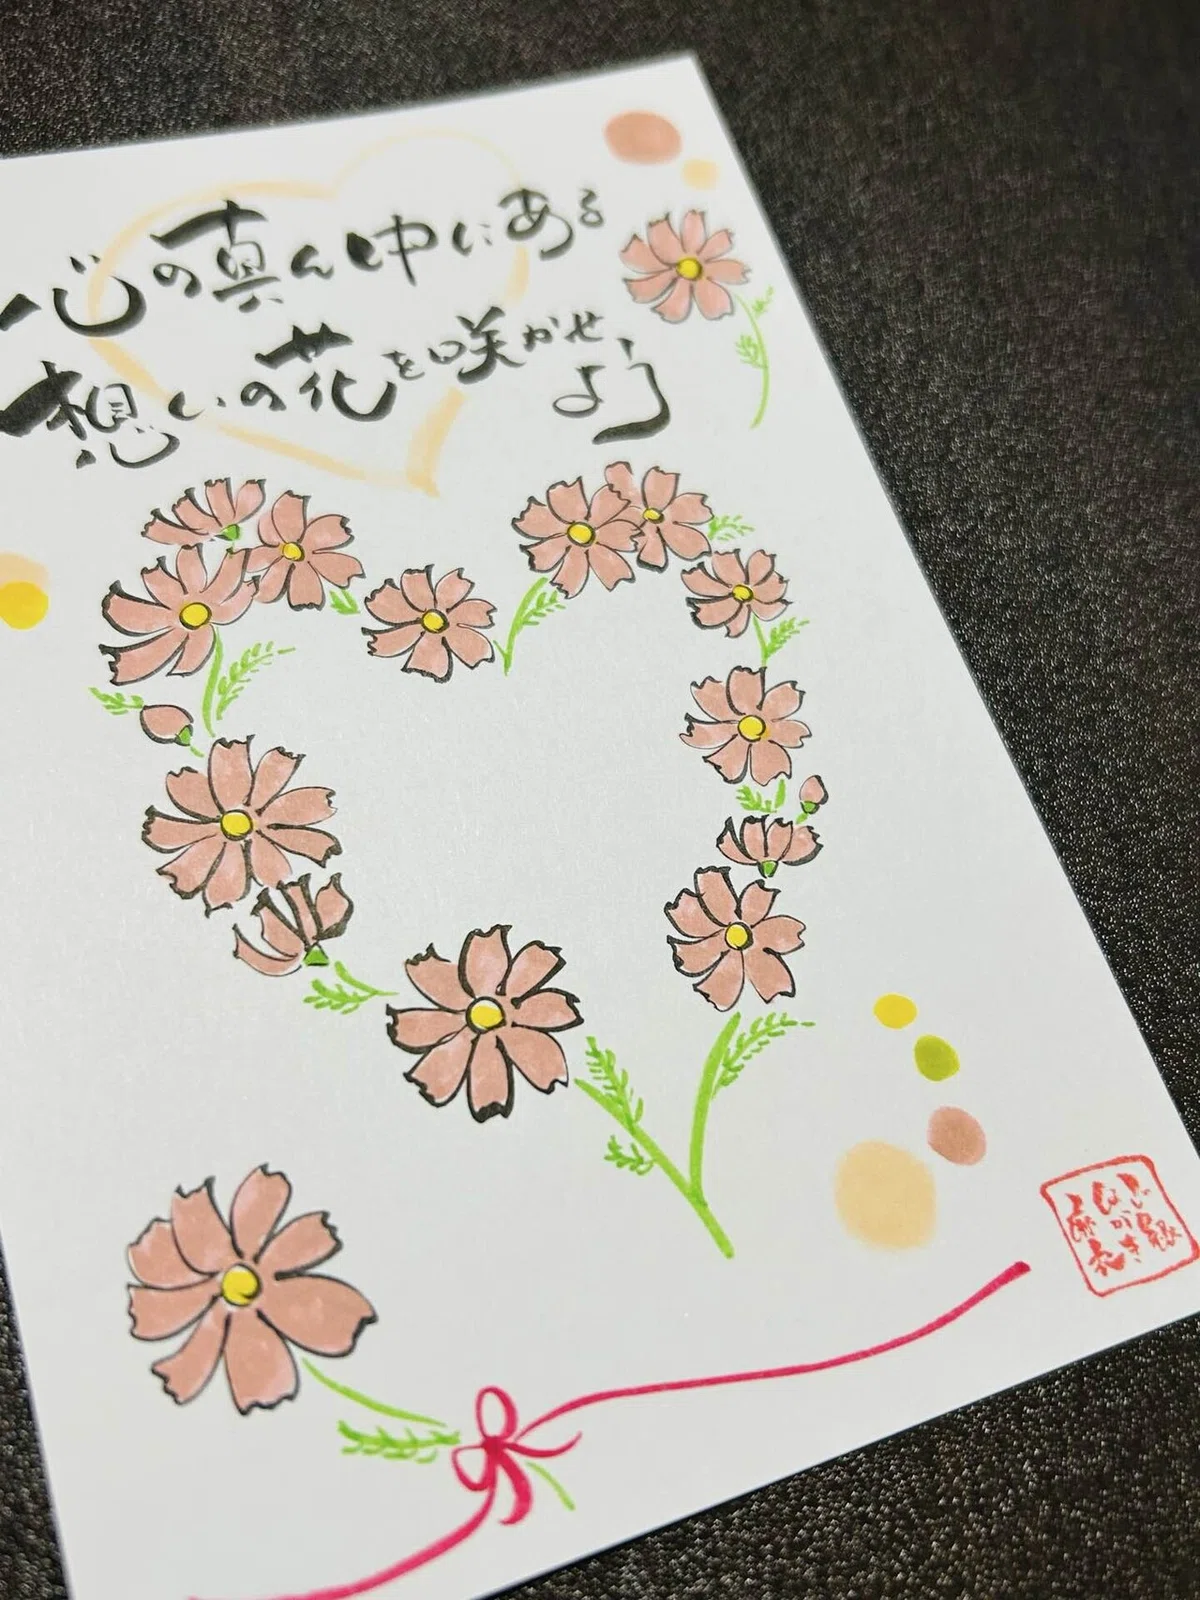 心の真ん中にある
想いの花を咲かせ
よう